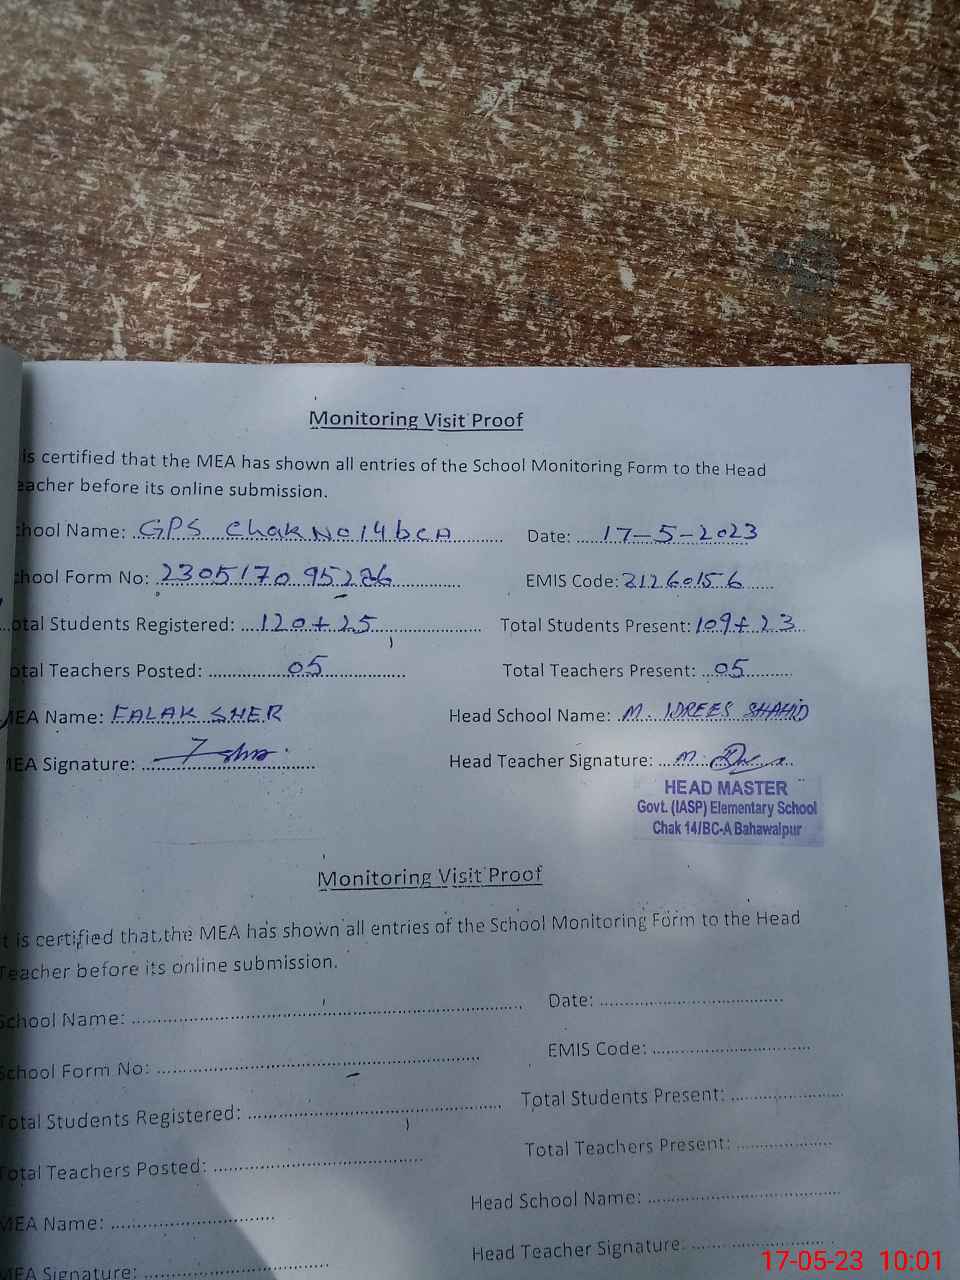 Monitoring Visit Proof
is certified that the MEA has shown all entries of the School Monitoring Form to the Head
eacher before its online submission.
chool Name: GPS Chak No 14 bCA Date: 17-5-2023
chool Form No: 230517095226 EMIS Code: 31260156
otal Students Registered: 120+25 Total Students Present: 109+23
otal Teachers Posted: 05 Total Teachers Present: 05
MEA Name: FALAK SHER Head School Name: M. IDREES SHAHID
MEA Signature: Head Teacher Signature: M.
HEAD MASTER
Govt. (IASP) Elementary School
Chak 14/BC-A Bahawalpur
Monitoring Visit Proof
t is certified that the MEA has shown all entries of the School Monitoring Form to the Head
Teacher before its online submission.
School Name: Date:
School Form No: EMIS Code:
Total Students Registered: Total Students Present:
Total Teachers Posted: Total Teachers Present:
MEA Name: Head School Name:
MEA Signature: Head Teacher Signature:
17-05-23 10:01